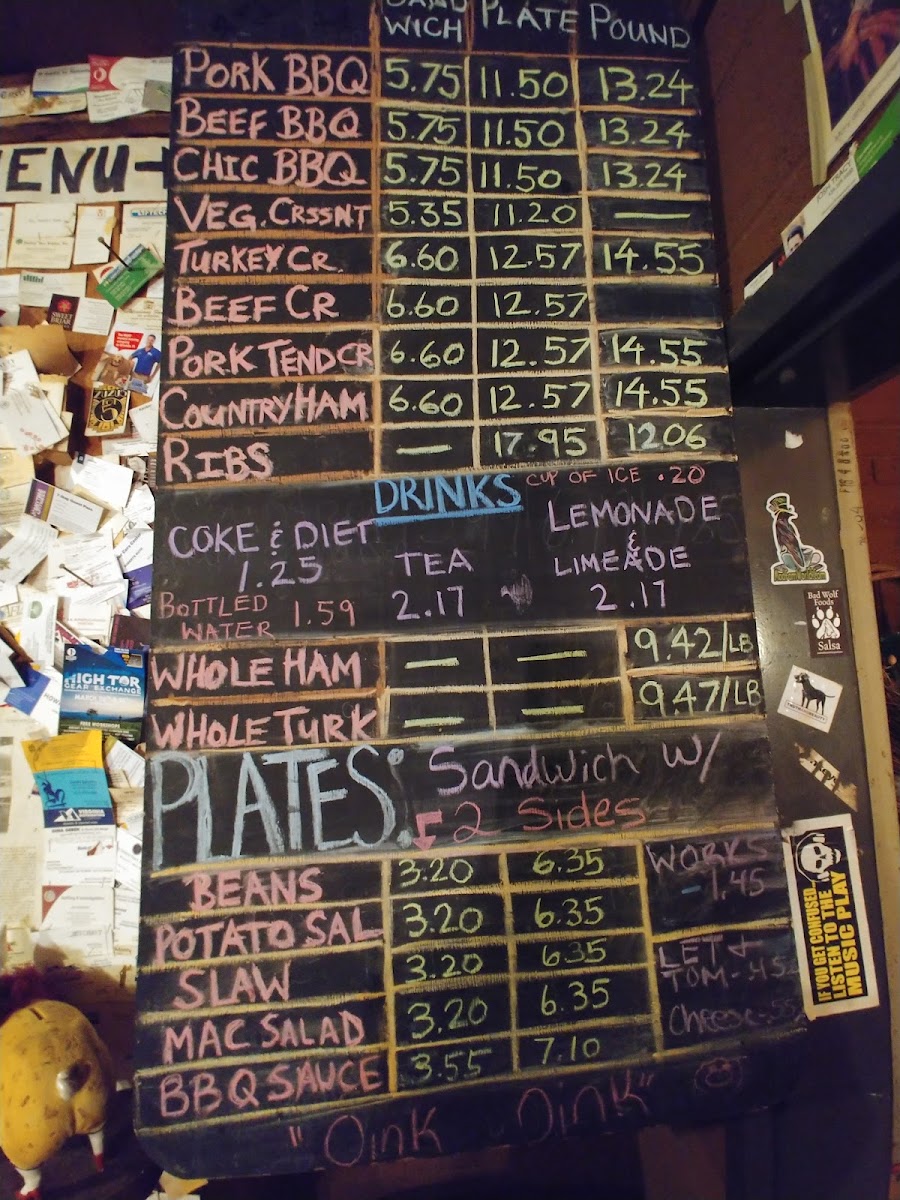 SAND
WICH PLATE POUND
PORK BBQ 5.75 11.50 13.24
BEEF BBQ 5.75 11.50 13.24
CHIC BBQ 5.75 11.50 13.24
VEG. CRSSNT 5.35 11.20 —
TURKEY CR. 6.60 12.57 14.55
BEEF CR 6.60 12.57
PORK TEND CR 6.60 12.57 14.55
COUNTRY HAM 6.60 12.57 14.55
RIBS — 17.95 1206
DRINKS CUP OF ICE .20
COKE & DIET
1.25
TEA
2.17
LEMONADE
&
LIMEADE
2.17
BOTTLED
WATER 1.59
WHOLE HAM — — 9.42/LB
WHOLE TURK — — 9.47/LB
PLATES: Sandwich w/
2 Sides
BEANS 3.20 6.35
POTATO SAL 3.20 6.35
SLAW 3.20 635
MAC SALAD 3.20 6.35
BBQ SAUCE 3.55 7.10
WORKS
- 1.45
LET +
TOM - .45
Cheese - .55
"Oink Oink"
ENU
HIGH TOR
GEAR EXCHANGE
FREE WORKSHOPS
VIRGINIA
SWEET
BRIAR
Bad Wolf
Foods
Salsa
IF YOU GET CONFUSED,
LISTEN TO THE
MUSIC PLAY